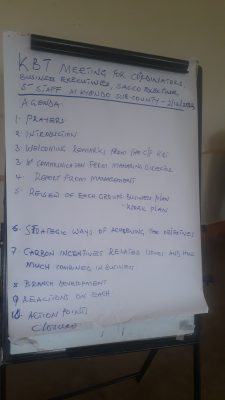 KBT MEETING FOR CORDINATORS,
BUSINESS EXECUTIVES, SACCO EXECUTIVE
& STAFF M KYONDO SUB-COUNTY - 2/12/2022
AGENDA
1. PRAYERS
2. INTRODUCTION
3. WELCOMING REMARKS FROM THE C/P KBT
3. COMMUNICATION FROM MANAGING DIRECTOR
4. REPORT FROM MANAGEMENT
5. REVIEW OF EACH GROUPS BUSINESS PLAN
- WORK PLAN
6. STRATEGIC WAYS OF ACHIEVING THE OBJECTIVES
7 CARBON INCENTIVES RELATED ISSUES AND HOW
MUCH COMBINED IN BUSINESS
8 BRANCH DEVELOPMENT
9 REACTIONS ON EACH
10 ACTION POINTS
CLOSURE